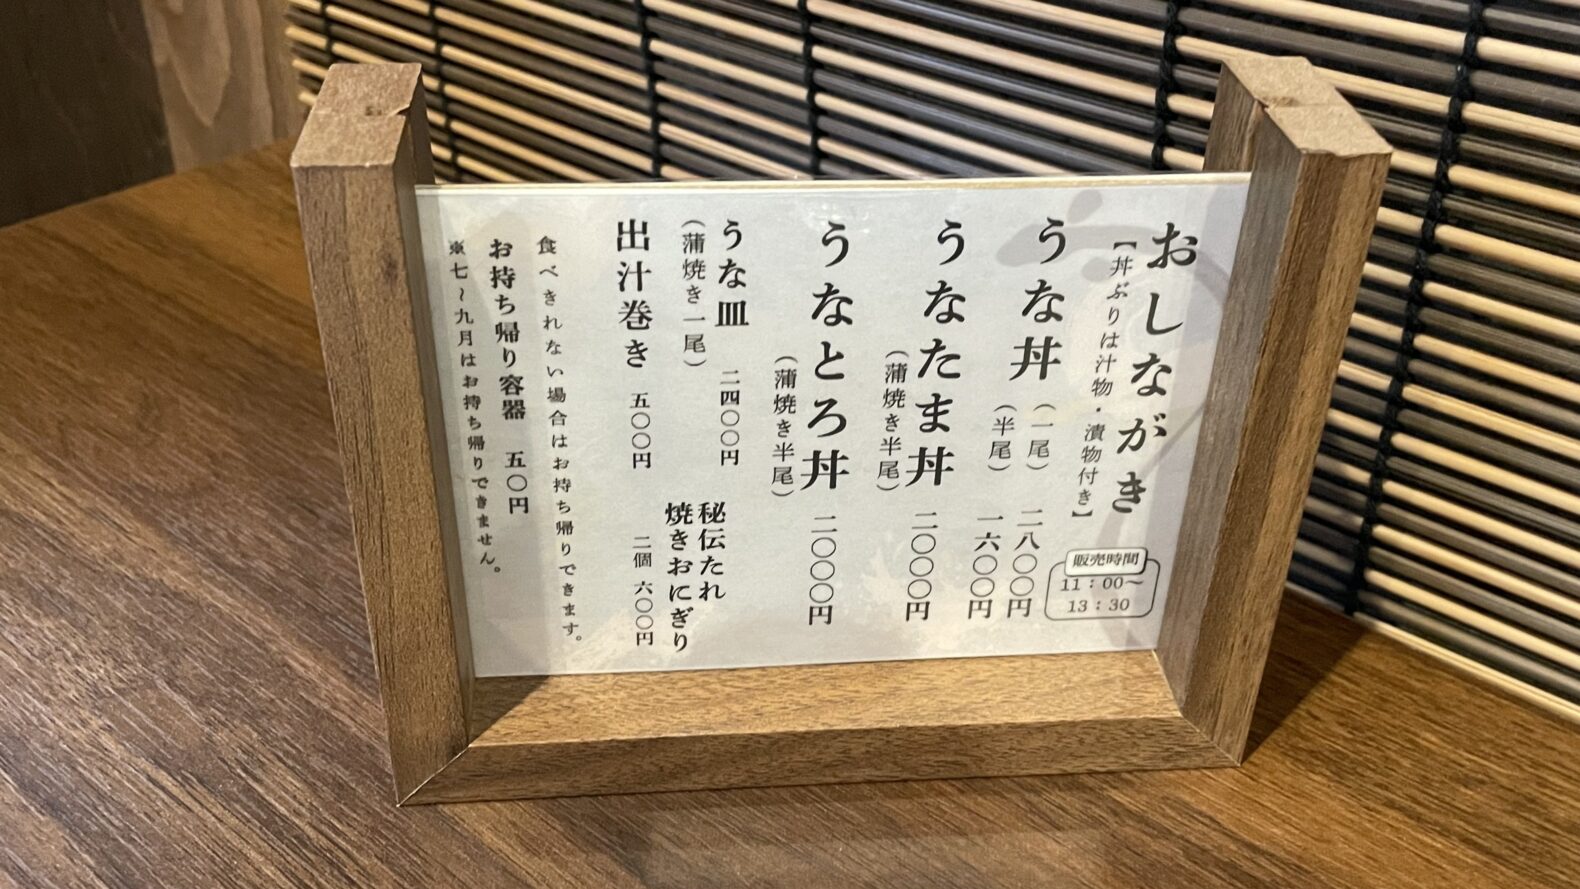 おしながき
【丼ぶりは汁物・漬物付き】
販売時間
11：00～
13：30
うな丼
（一尾） 二八〇〇円
（半尾） 一六〇〇円
うなたま丼
（蒲焼き半尾） 二〇〇〇円
うなとろ丼
（蒲焼き半尾） 二〇〇〇円
うな皿
（蒲焼き一尾） 二四〇〇円
秘伝たれ
焼きおにぎり
二個 六〇〇円
出汁巻き 五〇〇円
食べきれない場合はお持ち帰りできます。
お持ち帰り容器 五〇円
※七～九月はお持ち帰りできません。